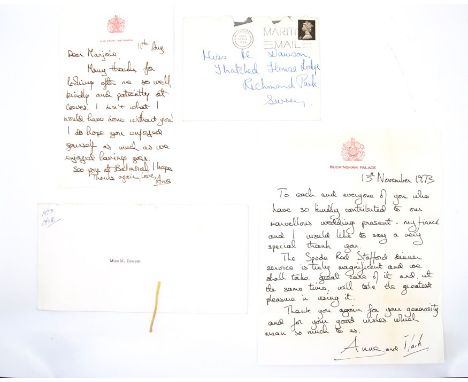 10th Aug.
Dear Marjorie
Many thanks for
looking after me so well
kindly and patiently at
Cowes. I don't what I
would have done without you!
I do hope you enjoyed
yourself as much as we
enjoyed having you.
See you at Balmoral I hope
Thanks again love
MARITI
EMAIL
Miss M. Dawson
Thatched House Lodge
Richmond Park
Surrey
Miss M. Dawson
BUCKINGHAM PALACE
13th November 1973
To each and everyone of you who
have so kindly contributed to our
marvellous wedding present - my fiancé
and I would like to say a very
special thank you.
The Spode Red Stafford dinner
service is truly magnificent and we
shall take great care of it and, at
the same time, will take the greatest
pleasure in using it.
Thank you again for your generosity
and for your good wishes which
mean so much to us.
Anne and Mark